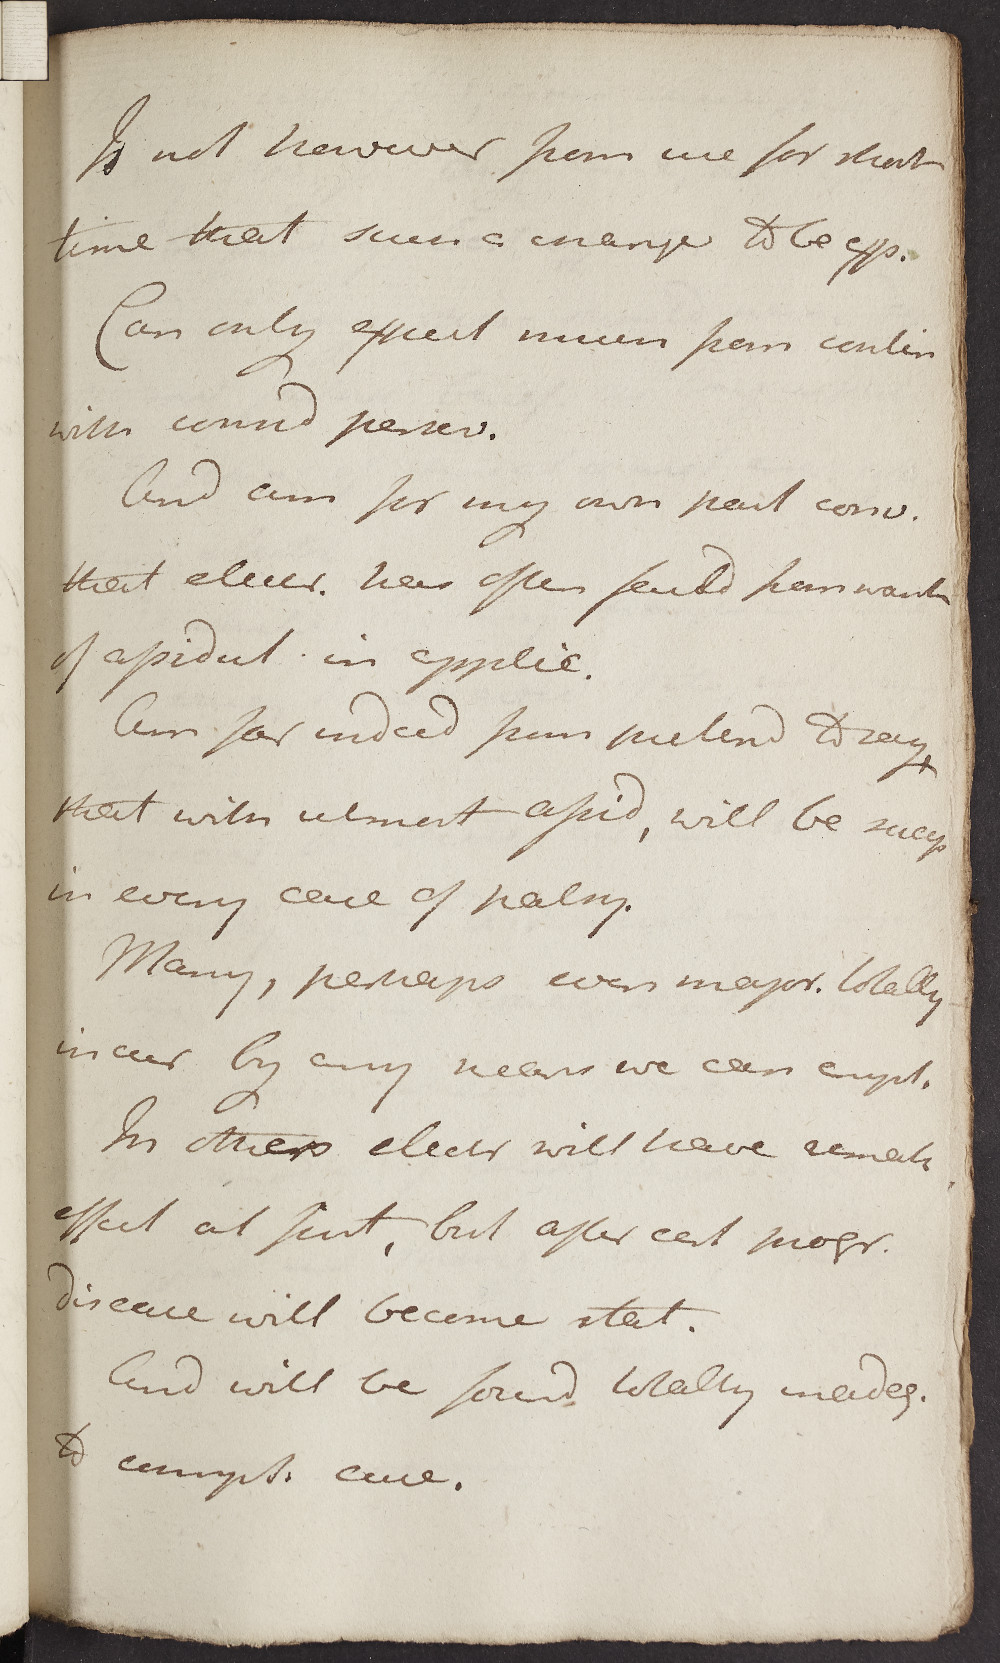 Is not however from use for short
time that such a change to be exp.
Can only expect much from contin
with consid persev.
And am for my own part conv.
that electr. has often fail'd from want
of assiduit. in applic.
Am far indeed from pretend to say
that with utmost assid, will be success
in every case of palsy.
Many, perhaps even major. totally
incur by any means we can empl.
In others electr will have remark
effect at first, but after cert progr.
disease will become stat.
And will be found totally inadeq.
to compl. cure.